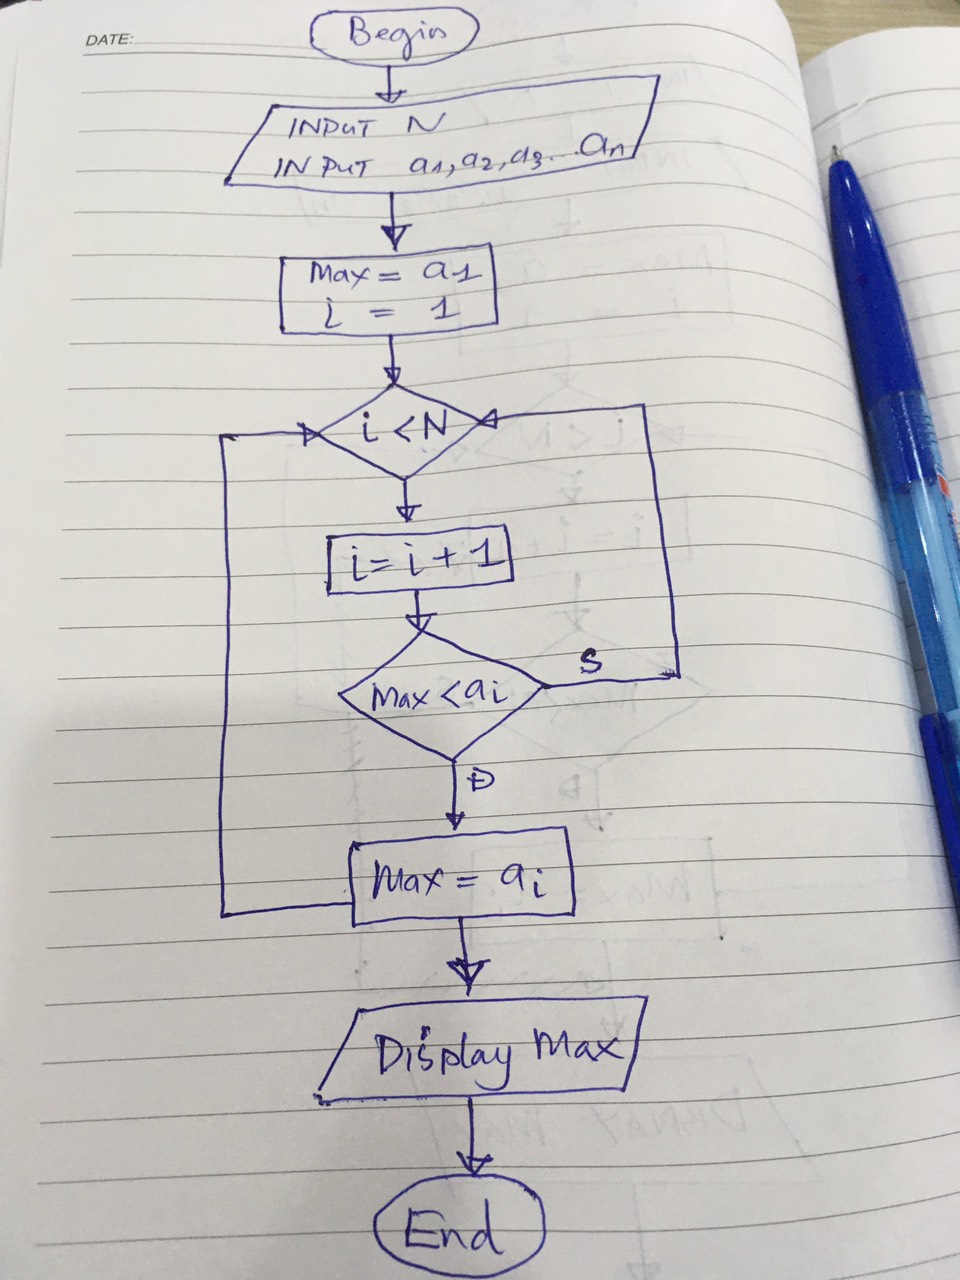 DATE:
Begin
INPUT N
INPUT a1, a2, a3... an
Max = a1
i = 1
i < N
i = i + 1
S
Max < ai
Đ
Max = ai
Display Max
End